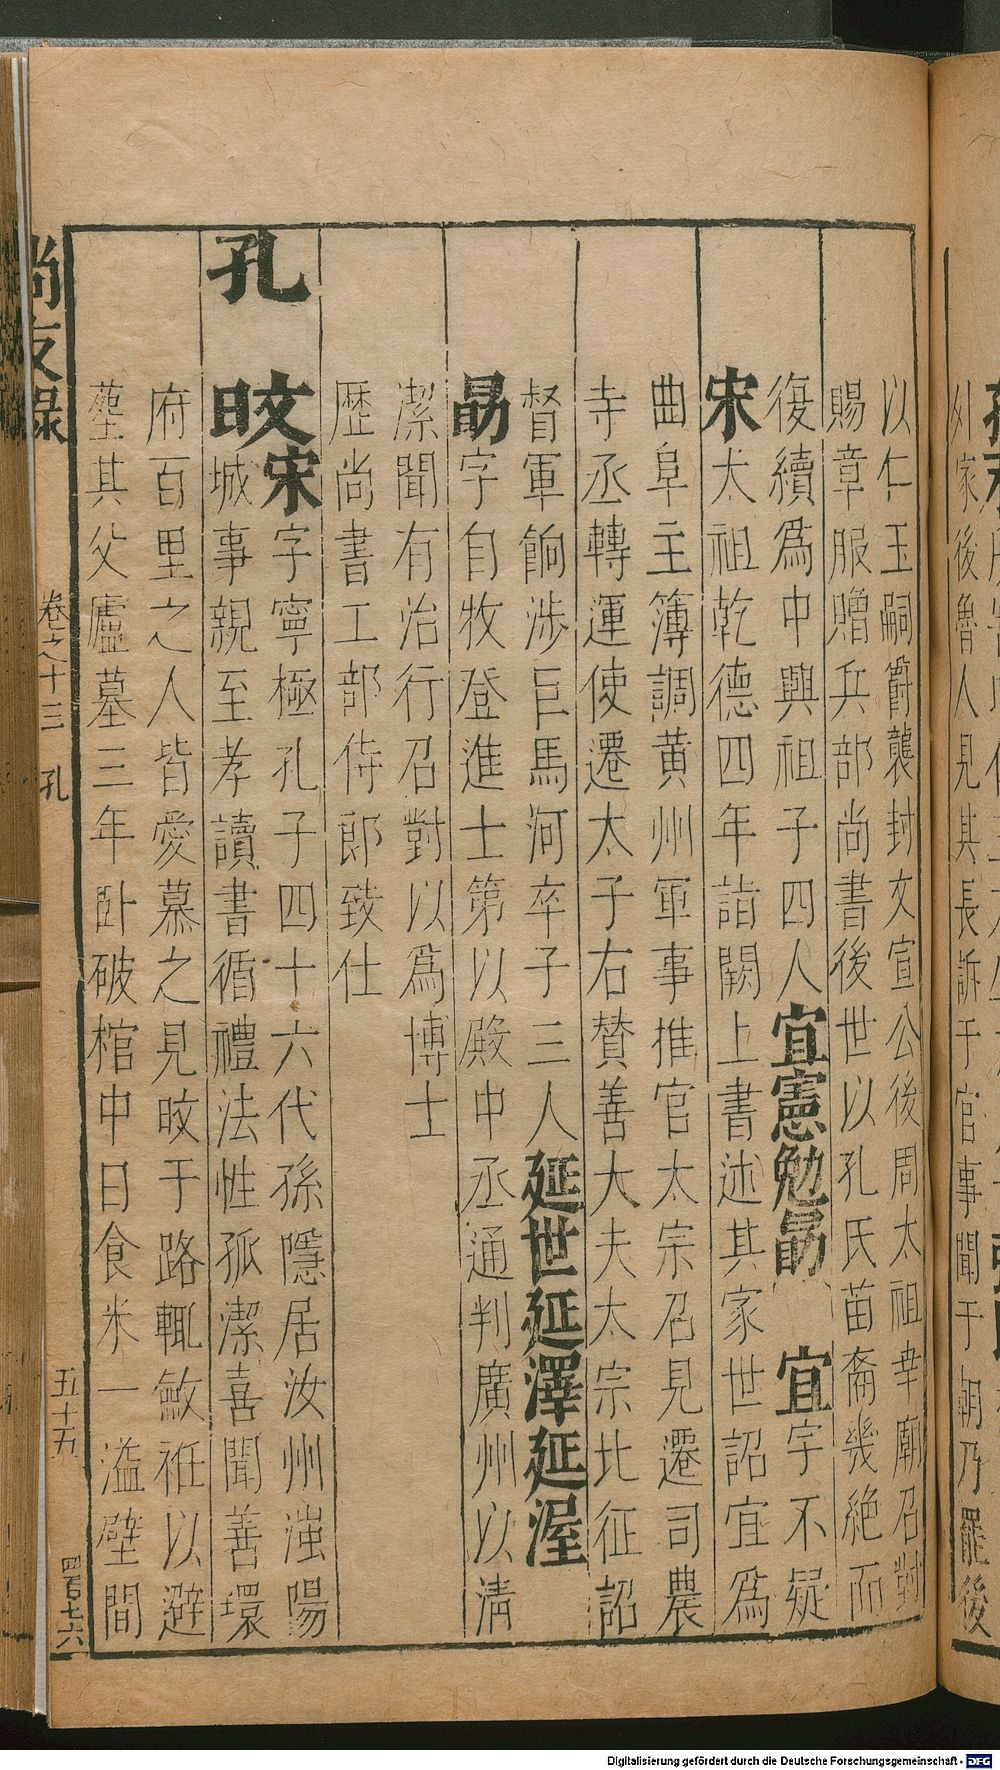 以仁玉嗣爵襲封文宣公後周太祖幸廟召對
賜章服贈兵部尚書後世以孔氏苗裔幾絶而
復續爲中興祖子四人宜憲勉勗 宜字不疑
宋太祖乾德四年詣闕上書述其家世詔宜爲
曲阜主簿調黄州軍事推官太宗召見遷司農
寺丞轉運使遷太子右賛善大夫太宗北征詔
督軍餉涉巨馬河卒子三人延世延澤延渥
勗字自牧登進士第以殿中丞通判廣州以清
潔聞有治行召對以爲博士
歴尚書工部侍郎致仕
孔旼宋字寧極孔子四十六代孫隱居汝州滍陽
城事親至孝讀書循禮法性孤潔喜聞善環
府百里之人皆愛慕之見旼于路輒斂袵以避
塟其父廬墓三年卧破棺中日食米一溢壁間
尚友錄
卷之十三 孔
五十五
四百七十六
外家後魯人見其長訴于官事聞于朝乃罷後
Digitalisierung gefördert durch die Deutsche Forschungsgemeinschaft - DFG